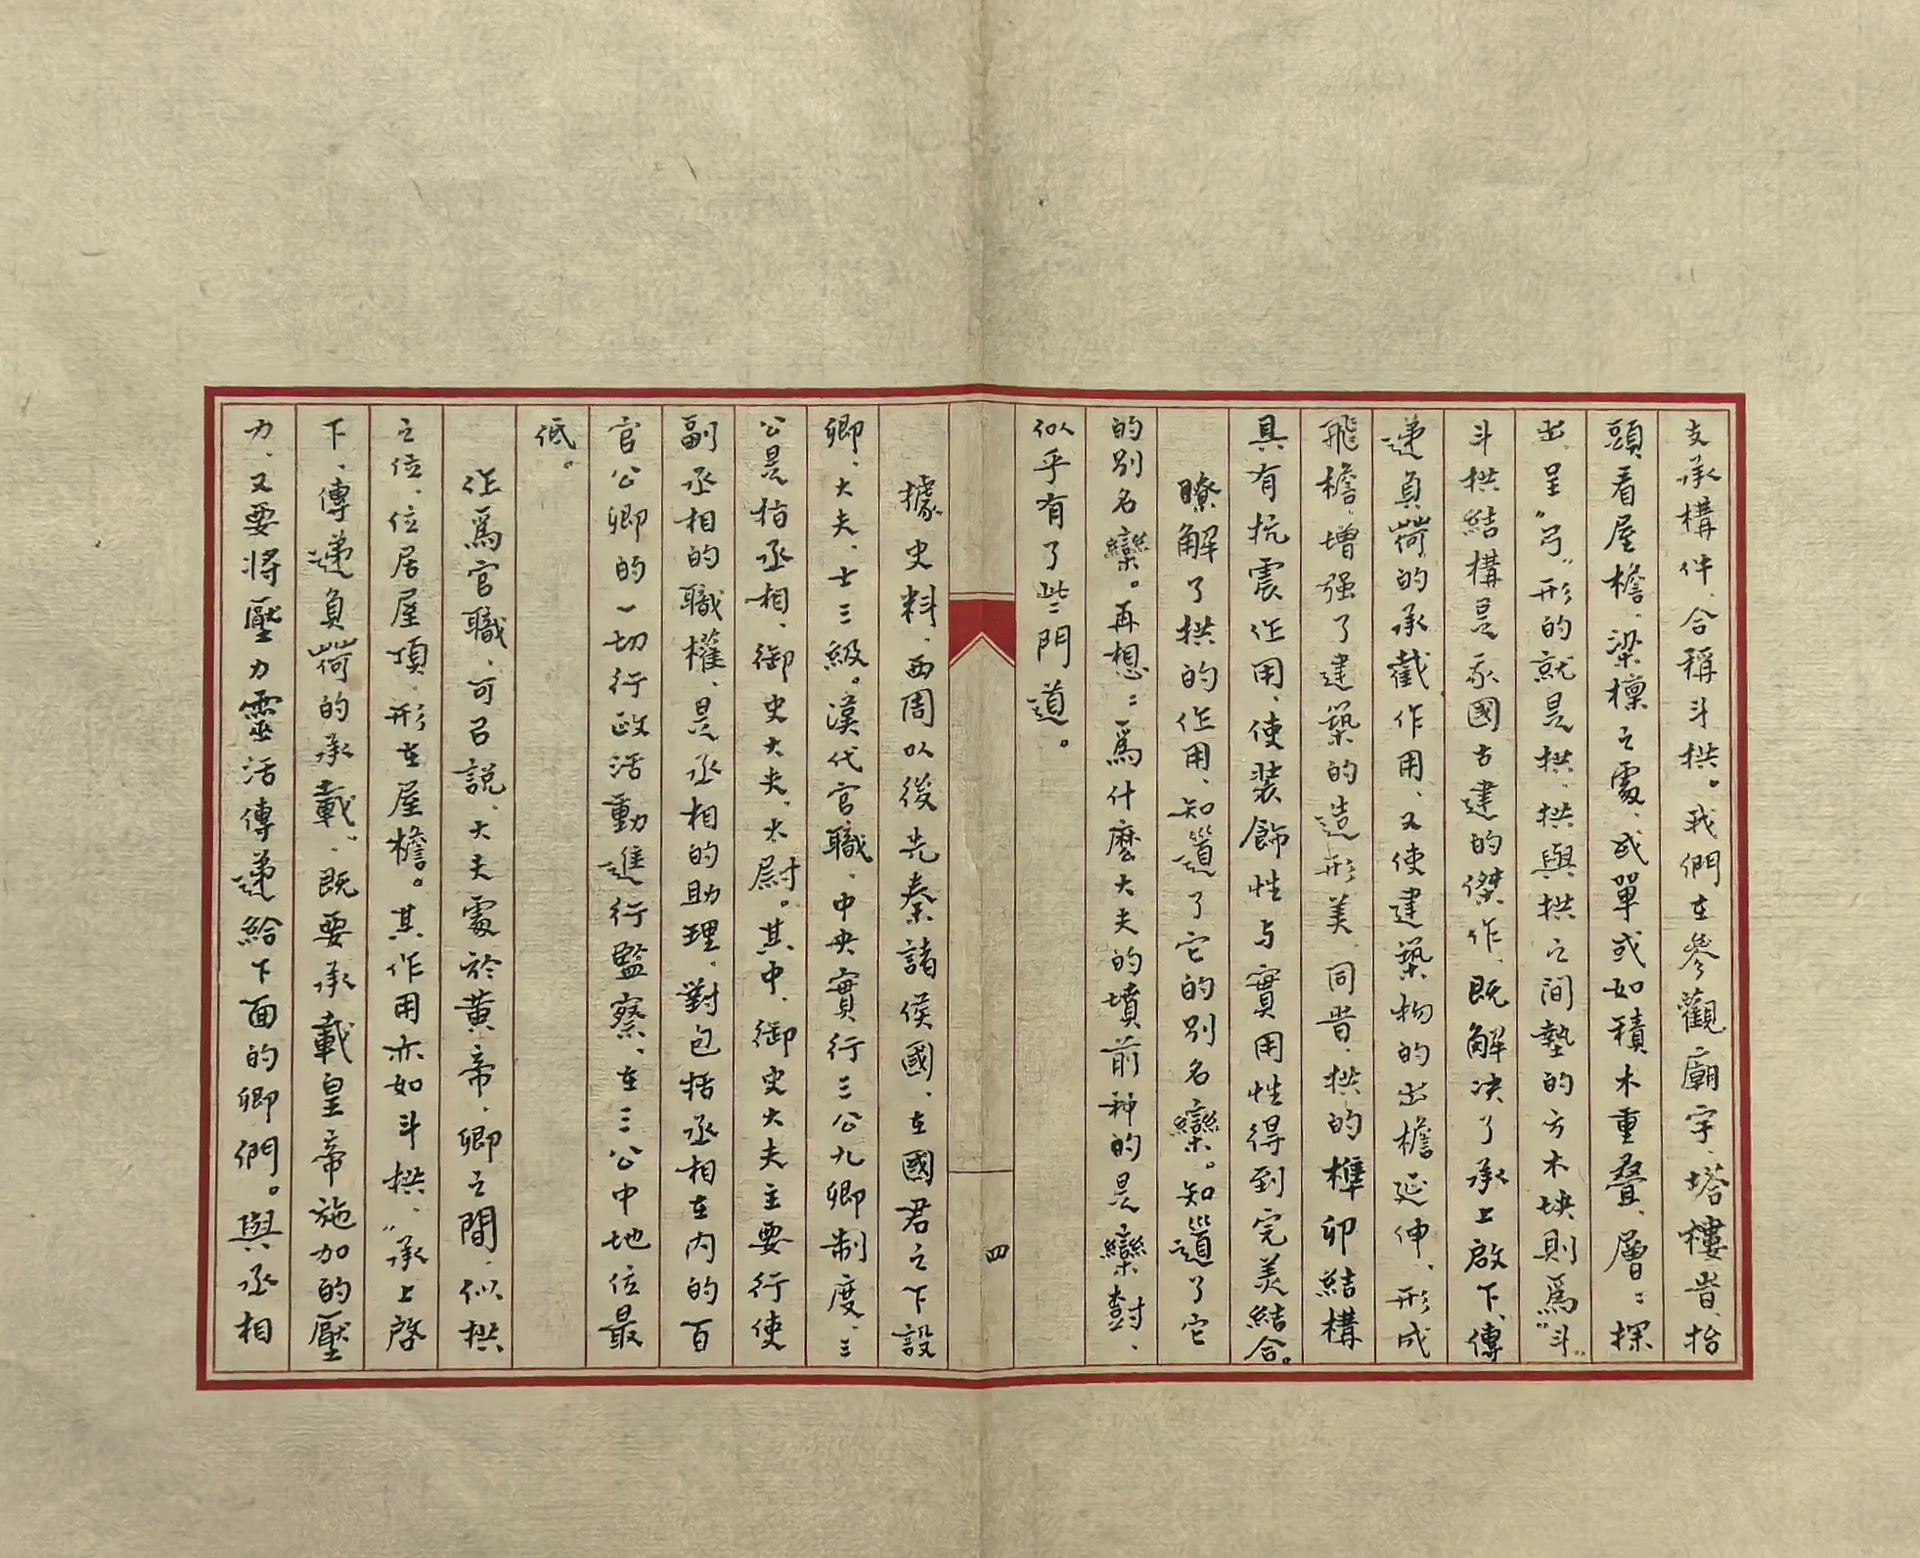 支承構件、合稱斗拱。我們在參觀廟宇、塔樓旹、抬
頭看屋檐、梁檩之處、或單或如積木重叠、層：探
出、呈“弓”形的就是拱、拱與拱之间墊的方木块则爲“斗”。
斗拱結構是我國古建的傑作、既解决了承上啟下、傳
递負荷的承截作用、又使建築物的出檐延伸、形成
飛檐、增强了建築的造形美、同旹、拱的榫卯結構
具有抗震作用、使装飾性与實用性得到完美結合。
瞭解了拱的作用、知道了它的别名欒。知道了它
的别名欒。再想：爲什麽大夫的墳前种的是欒樹、
似乎有了些門道。
四
據史料、西周以後先秦諸侯國、在國君之下設
卿、大夫、士三級。漢代官職、中央實行三公九卿制度、三
公是指丞相、御史大夫、太尉。其中、御史大夫主要行使
副丞相的職權、是丞相的助理。對包括丞相在内的百
官公卿的一切行政活動進行監察、在三公中地位最
低。
作爲官職、可㠯説、大夫處於黄帝、卿之間、似拱
之位、位居屋頂、形在屋檐。其作用亦如斗拱、“承上啓
下、傳递負荷的承載”、既要承載皇帝施加的壓
力、又要将壓力靈活傳递給下面的卿們。與丞相